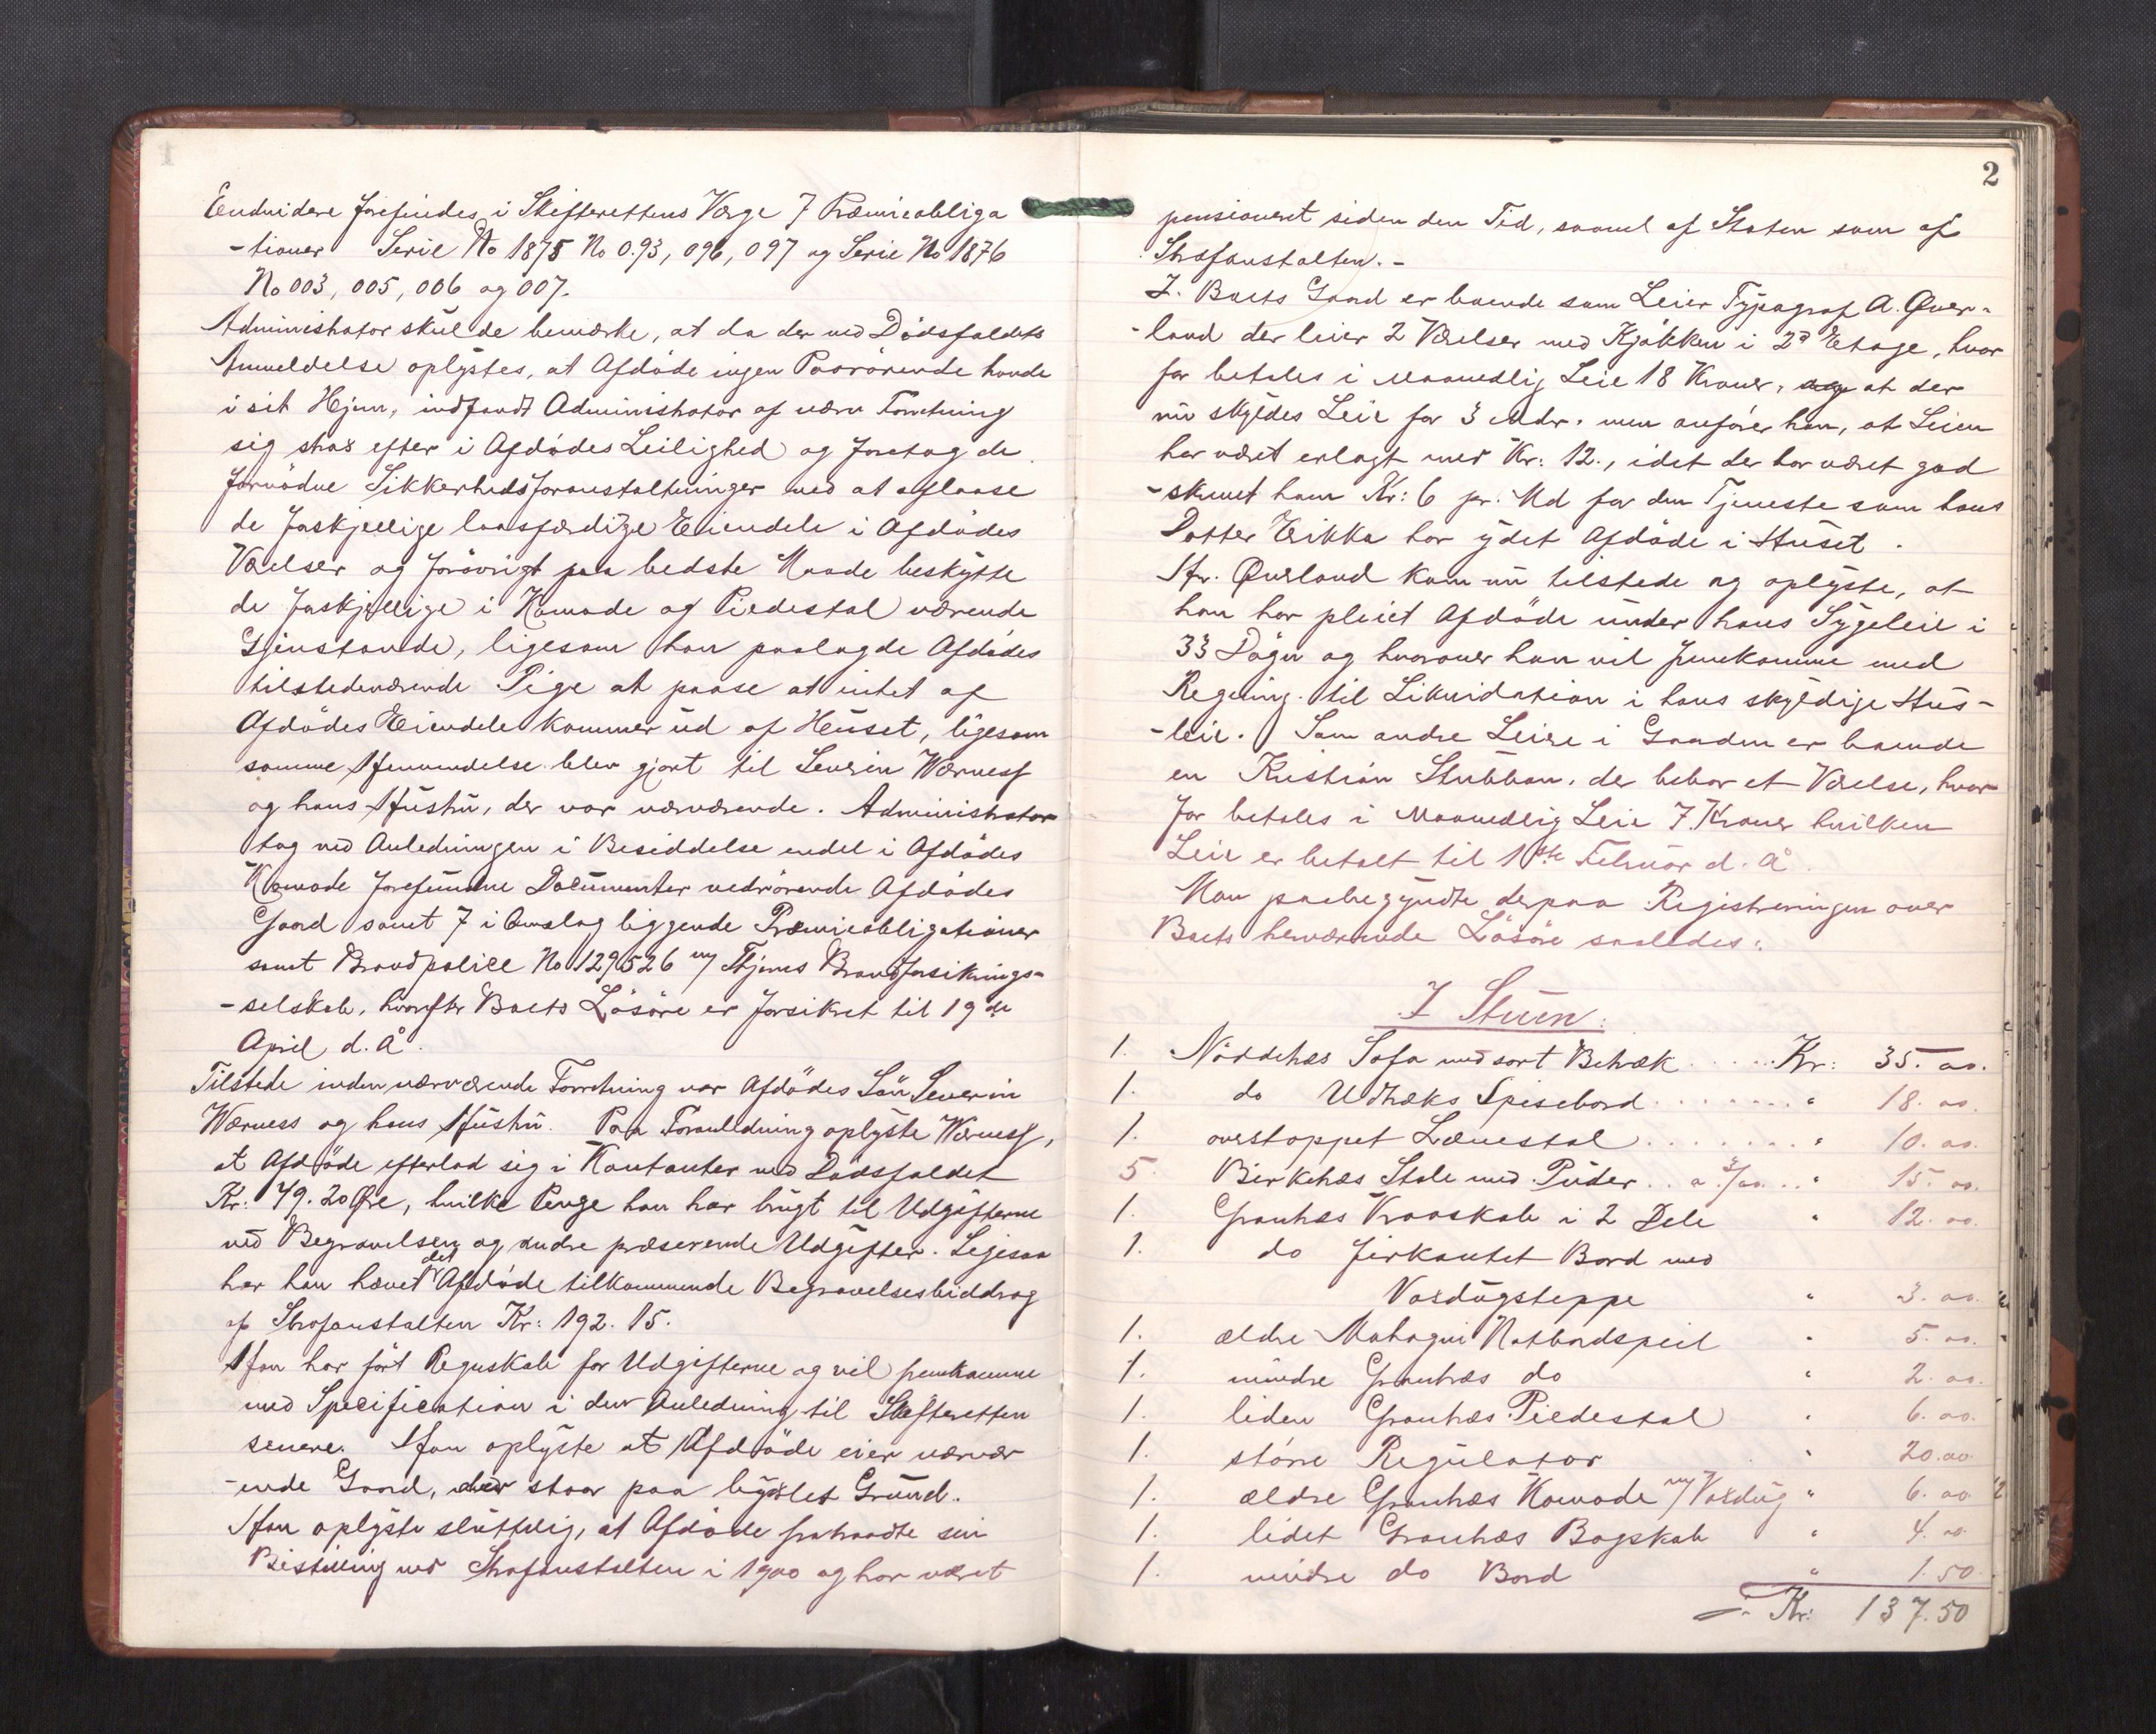 1
Endvidere forefindes i Skifterettens Værge 7 Præmieobliga
-tioner Serie No 1875 No 093, 096, 097 og Serie No 1876
No 003, 005, 006 og 007.
Administrator skulde bemærke, at da der ved Dödsfaldets
Anmeldelse oplystes, at Afdöde ingen Paarörende havde
i sit Hjem, indfandt Administrator af nærv Forretning
sig strax efter i Afdödes Leilighed og foretog de
fornödne Sikkerhedsforanstaltninger ved at aflaase
de forskjellige laasfærdige Eiendele i Afdödes
Værelser og forövrigt paa bedste Maade beskytte
de forskjellige i Komode og Piedestal værende
Gjenstande, ligesom han paalagde Afdödes
tilstedeværende Pige at paase at intet af
Afdödes Eiendele kommer ud af Huset, ligesom
samme Henvendelse blev gjort til Severin Værness
og hans Hustru, der var nærværende. Administrator
tog ved Anledningen i Besiddelse endel i Afdödes
Komode forefundne Documenter vedrörende Afdödes
Gaard samt 7 i Omslag liggende Præmieobligationer
samt Brandpolice No 129526 m/ Brandforsikrings-
-selskab, hvorefter Boets Lösöre er forsikret til 19de
April d. A.
Tilstede under nærværende Forretning var Afdödes Sön Severin
Værness og hans Hustru. Paa Foranledning oplyste Værness,
at Afdöde efterlod sig i Kontanter ved Dödsfaldet
Kr. 49.20 Øre, hvilke Penge han har brugt til Udgifterne
ved Begravelsen og andre præserende Udgifter. Ligesaa
har han hævet det Afdöde tilkommende Begravelsesbiddrag
af Strafanstalten Kr: 192.15.
Han har fört Regnskab for Udgifterne og vil fremkomme
med Specification i den Anledning til Skifteretten
senere. Han oplyste at Afdöde eier nærvær
-ende Gaard, der staar paa bygslet Grund.
Han oplyste sluttelig, at Afdöde fratraadte sin
Bestilling ved Strafanstalten i 1900 og har været
2
pensioneret siden den Tid, saavel af Staten som af
Strafanstalten.-
I. Boets Gaard er boende som Leier Typograf A. Øver-
-land der leier 2 Værelser med Kjökken i 2d Etage, hvor
for betales i Maanedlig Leie 18 Kroner, at der
nu skyldes Leie for 3 Mdr. men anförer han, at Leien
har været erlagt med Kr: 12., idet der har været god
-skrevet ham Kr: 6 pr. Md for den Tjeneste som hans
Datter Erikka har ydet Afdöde i Huset.
Hr. Øverland kom nu tilstede og oplyste, at
han har pleiet Afdöde under hans Sygeleie i
33 Dögn og hvorover han vil fremkomme med
Regning til Likvidation i hans skyldige Hus-
-leie. Som andre Leiere i Gaarden er boende
en Kristian Stubban, der bebor et Værelse, hvor
for betales i Maanedlig Leie 7 Kroner hvilken
Leie er betalt til 1ste Februar d. A.
Man paabegyndte derpaa Registreringen over
Boets henværende Lösöre saaledes:
I Stuen:
1. Nöddetræs Sofa med sort Betræk ..... Kr: 35.00.
1. do Udtræks Spisebord ........ " 18.00.
1. overstoppet Lænestol ....... " 10.00.
5. Birketræs Stole med Puder .. a 3/00 .. " 15.00.
1. Grantræs Kraaskab i 2 Dele " 12.00.
1. do firkantet Bord med
Voxdugsteppe " 3.00.
1. ældre Mahogni Natbordspeil " 5.00.
1. mindre Grantræs do " 2.00.
1. liden Grantræs Piedestal " 6.00.
1. större Regulator " 20.00
1. ældre Grantræs Komode m/ Voxdug " 6.00
1. lidet Grantræs Bogskab " 4.00
1. mindre do Bord " 1.50
Kr: 137.50